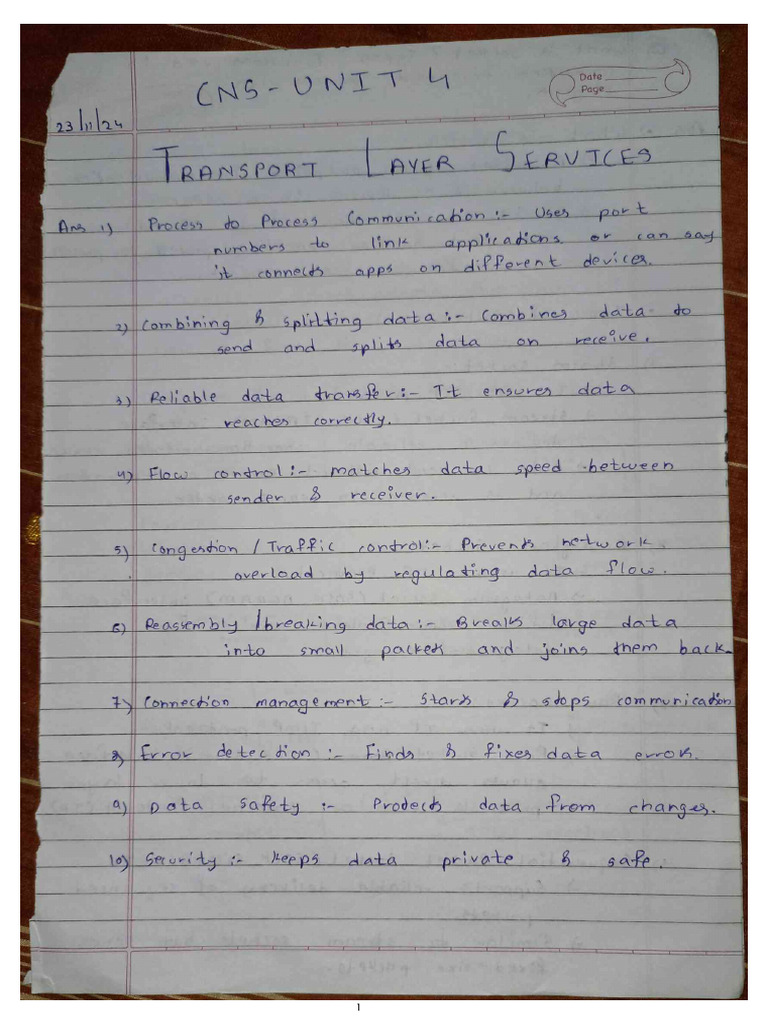 CNS - UNIT 4
Date
Page
23/11/24
TRANSPORT LAYER SERVICES
Ans 1) Process to Process Communication :- Uses port
numbers to link applications or can say
it connects apps on different devices.
2) Combining & splitting data :- Combines data to
send and splits data on receive.
3) Reliable data transfer :- It ensures data
reaches correctly.
4) Flow control :- matches data speed between
sender & receiver.
5) Congestion / Traffic control :- Prevents network
overload by regulating data flow.
6) Reassembly / breaking data :- Breaks large data
into small packets and joins them back.
7) Connection management :- Starts & stops communication
8) Error detection :- Finds & fixes data errors.
9) Data safety :- Protects data from changes.
10) Security :- keeps data private & safe.
1